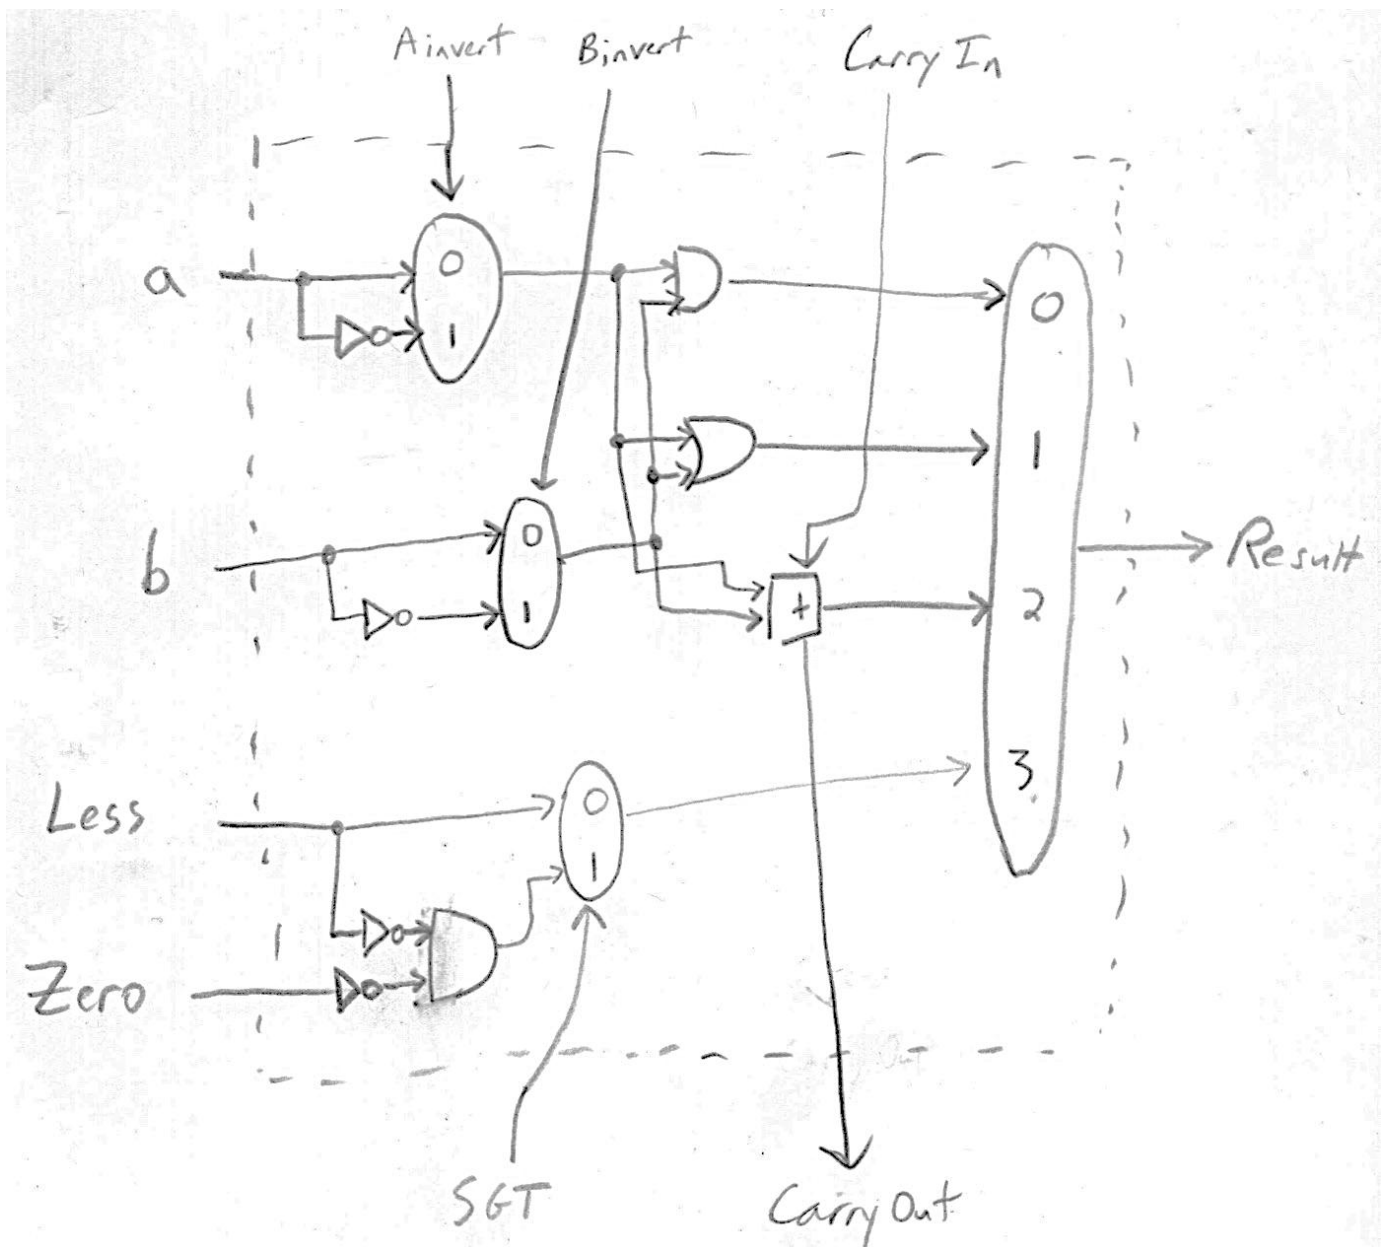 Ainvert
Binvert
Carry In
a
0
1
0
1
b
0
1
+
2
Result
Less
0
1
3
Zero
SGT
Carry Out